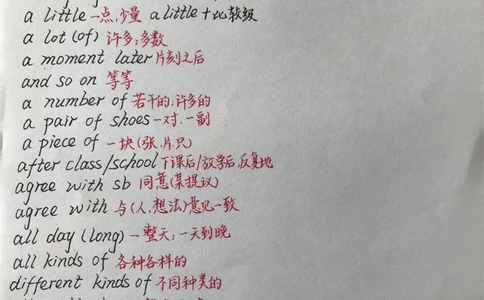 a little 一点,少量 a little + 比较级
a lot (of) 许多;多数
a moment later 片刻之后
and so on 等等
a number of 若干的;许多的
a pair of shoes 一对.一副
a piece of 一块(张.片.只)
after class/school 下课后/放学后,反复地
agree with sb 同意(某提议)
agree with 与(人,想法)意见一致
all day (long) 一整天;一天到晚
all kinds of 各种各样的
different kinds of 不同种类的